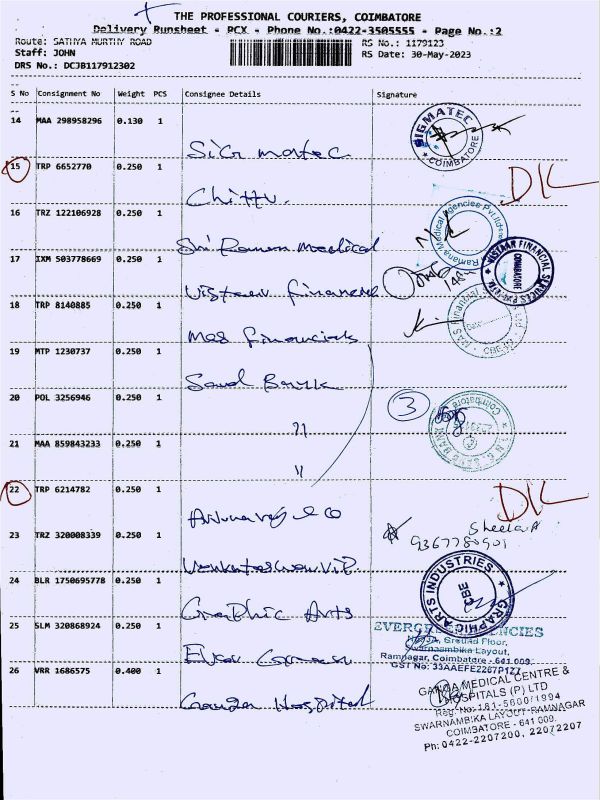 THE PROFESSIONAL COURIERS, COIMBATORE
Delivery Runsheet - PCX - Phone No.:0422-3505555 - Page No.:2
Route: SATHYA MURTHY ROAD
RS No.: 1179123
Staff: JOHN
RS Date: 30-May-2023
DRS No.: DCJB117912302
S No Consignment No Weight PCS Consignee Details Signature
14 MAA 298958296 0.130 1
SIGMATEC
COIMBATORE
15 TRP 6652770 0.250 1
Chittu.
16 TRZ 122106928 0.250 1
Sri Ramana Medical
Ramana Medical Agencies Pvt.Ltd
17 IXM 503778669 0.250 1
Vistaar financial
VISTAAR FINANCIAL SERVICES PVT. LTD
COIMBATORE
18 TRP 8140885 0.250 1
Mas financials
Date:
19 MTP 1230737 0.250 1
20 POL 3256946 0.250 1
"
3
Coimbatore
21 MAA 859843233 0.250 1
"
22 TRP 6214782 0.250 1
23 TRZ 320008339 0.250 1
Sheela
24 BLR 1750695778 0.250 1
Graphic Arts
GRAPHIC ARTS INDUSTRIES
CBE
25 SLM 320868924 0.250 1
Ever Green
EVERGREEN AGENCIES
Ground Floor,
Swarnambika Layout,
Ramnagar, Coimbatore - 641 009.
GST No: 33AAEFE2267P1Z7
26 VRR 1686575 0.400 1
Ganga Hospital
GANGA MEDICAL CENTRE &
HOSPITALS (P) LTD
Reg. No: 181-5800/1994
SWARNAMBIKA LAYOUT, RAMNAGAR
COIMBATORE - 641 009.
Ph: 0422-2207200, 22072207